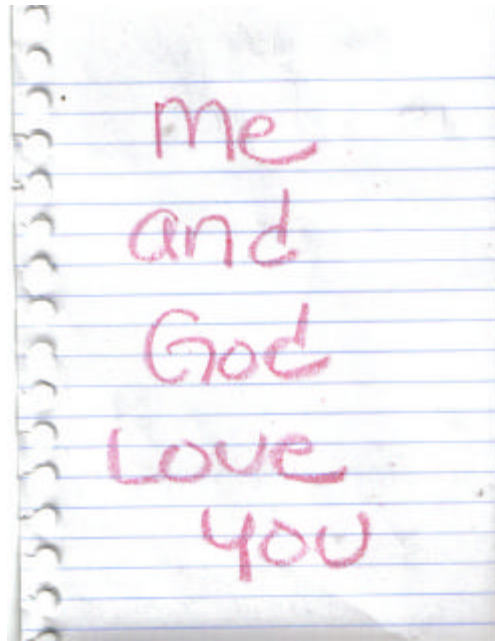 Me
and
God
Love
you